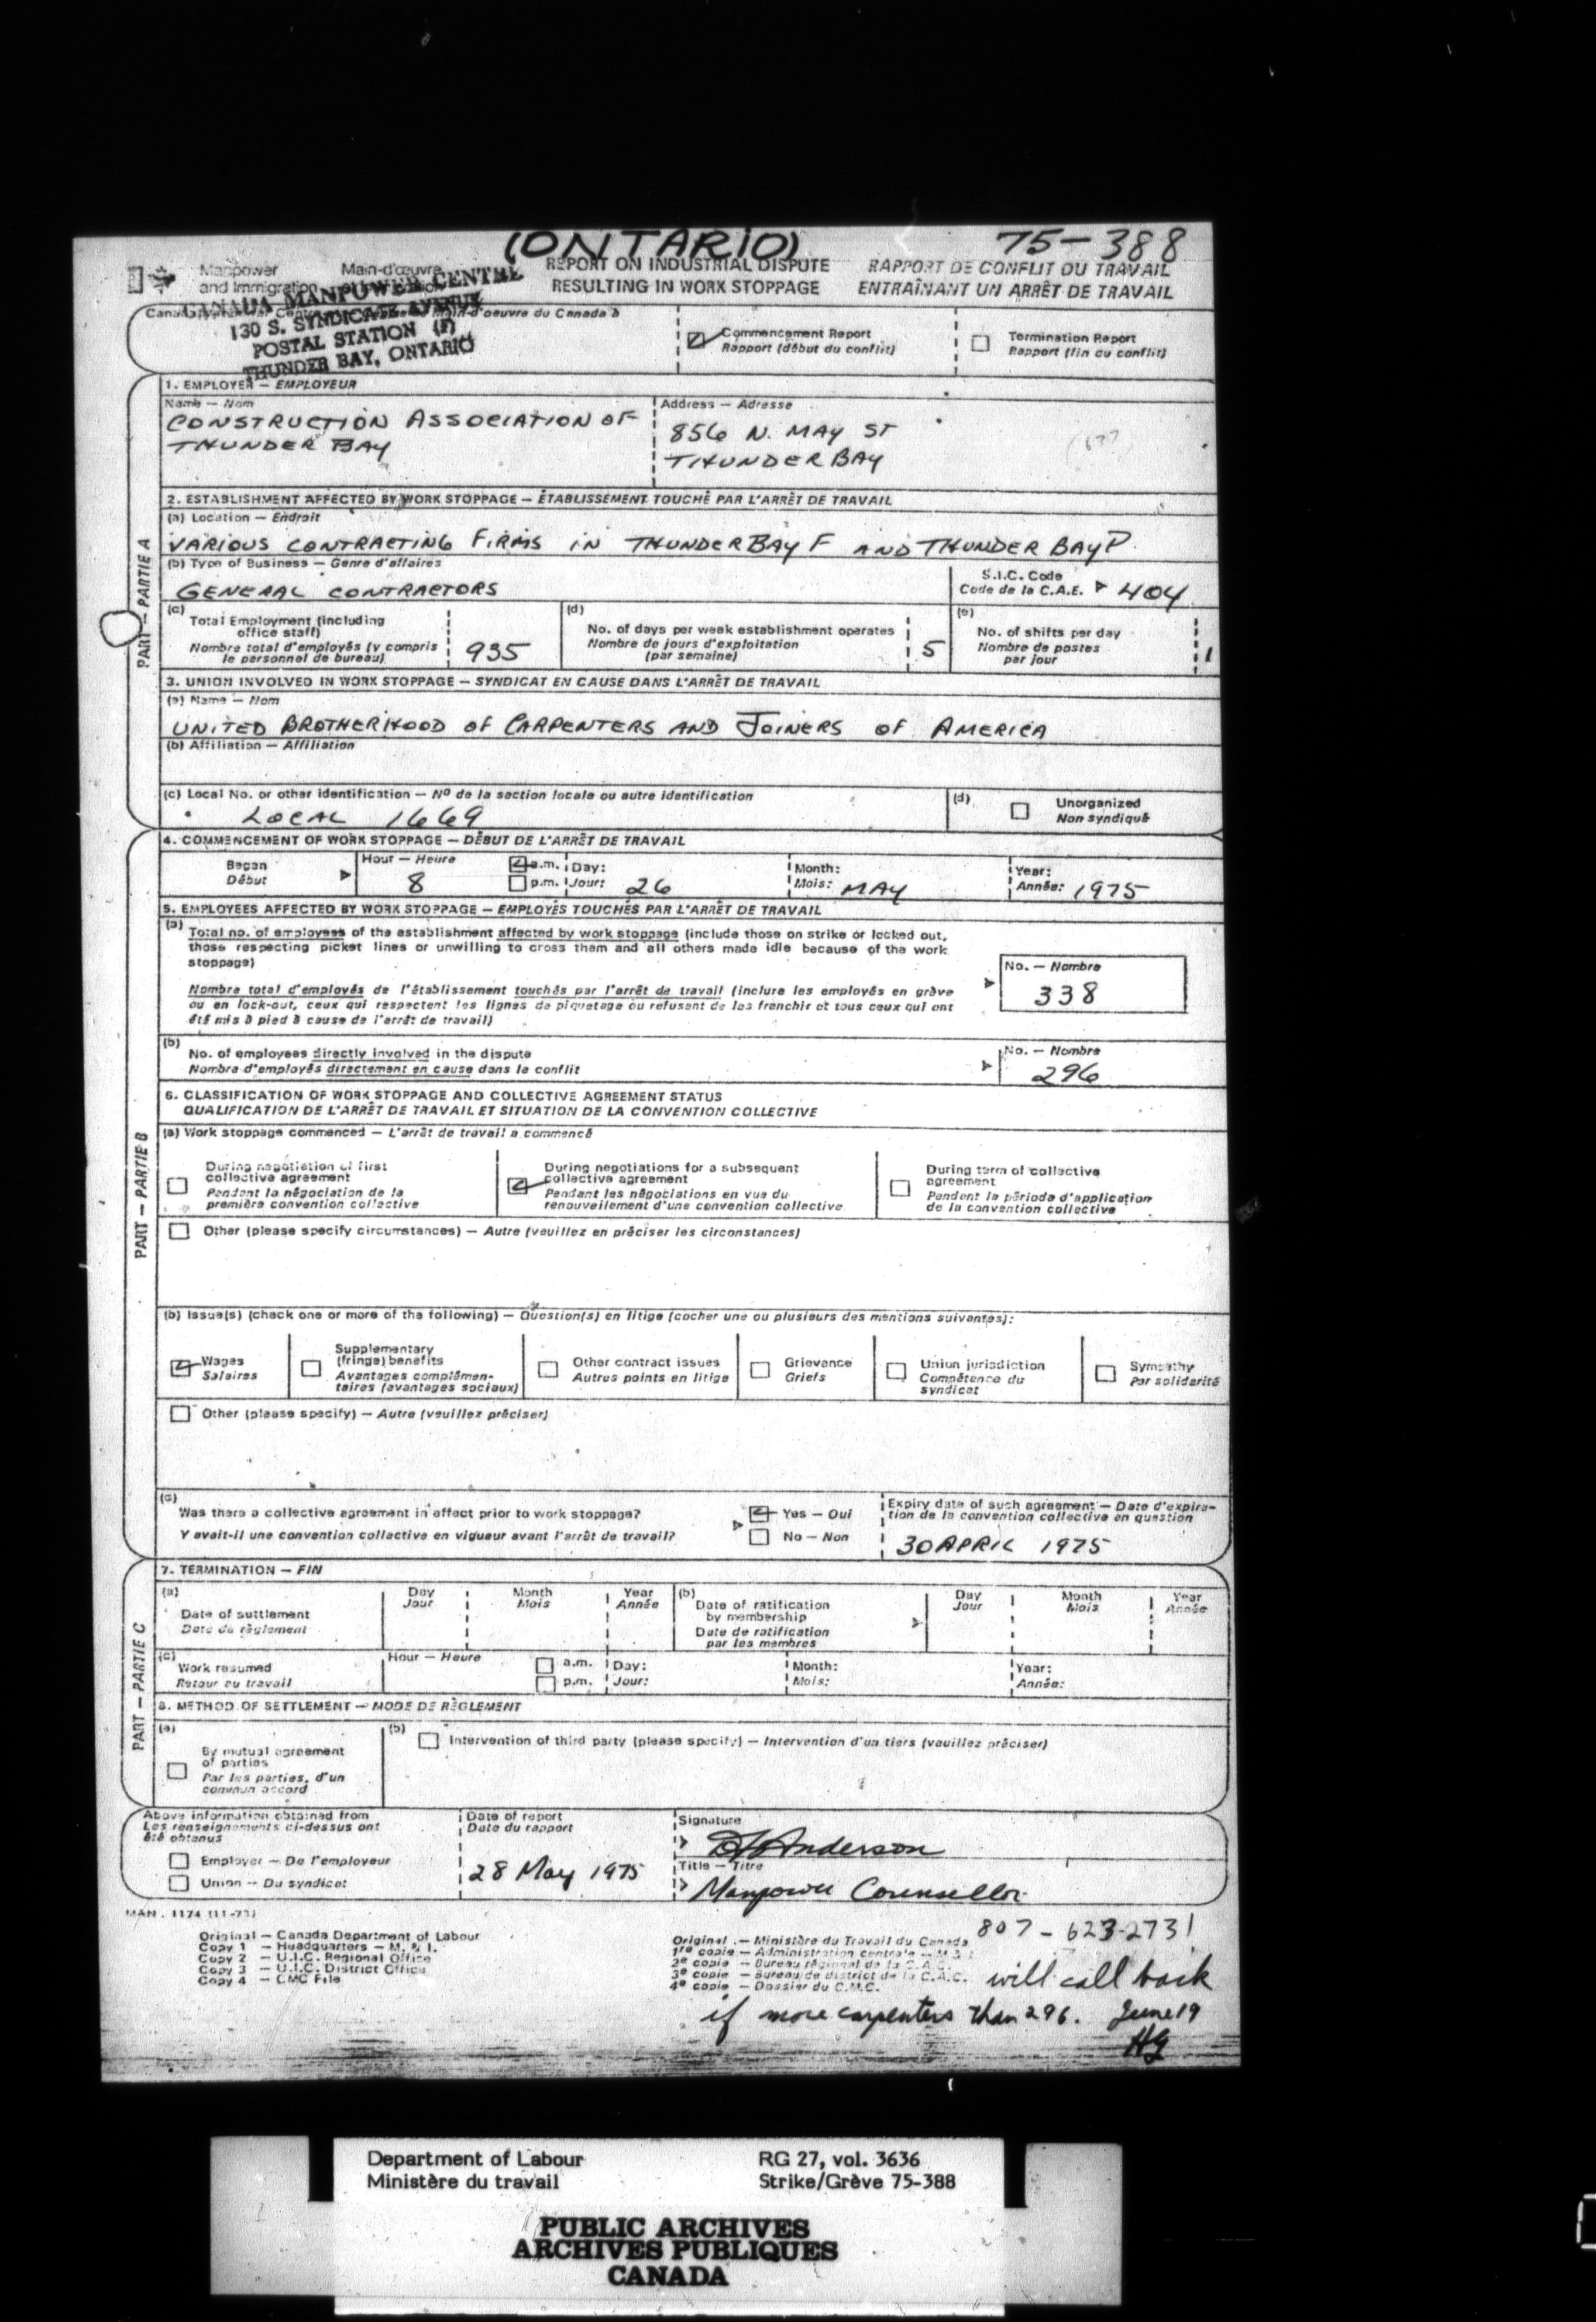 (ONTARIO) 75-388
Manpower and Immigration
Main-d'œuvre
REPORT ON INDUSTRIAL DISPUTE
RESULTING IN WORK STOPPAGE
RAPPORT DE CONFLIT DU TRAVAIL
ENTRAÎNANT UN ARRÊT DE TRAVAIL
CANADA MANPOWER CENTRE
130 S. SYNDICATE AVENUE
POSTAL STATION (F)
THUNDER BAY, ONTARIO
Commencement Report
Rapport (début du conflit)
Termination Report
Rapport (fin du conflit)
PART – PARTIE A
1. EMPLOYER – EMPLOYEUR
Name – Nom
CONSTRUCTION ASSOCIATION OF
THUNDER BAY
Address – Adresse
856 N. MAY ST
THUNDER BAY
2. ESTABLISHMENT AFFECTED BY WORK STOPPAGE – ÉTABLISSEMENT TOUCHÉ PAR L'ARRÊT DE TRAVAIL
(a) Location – Endroit
VARIOUS CONTRACTING FIRMS IN THUNDER BAY F AND THUNDER BAY P
(b) Type of Business – Genre d'affaires
GENERAL CONTRACTORS
S.I.C. Code
Code de la C.A.E. 404
(c) Total Employment (including
office staff)
Nombre total d'employés (y compris
le personnel de bureau)
935
(d) No. of days per week establishment operates
Nombre de jours d'exploitation
(par semaine)
5
(e) No. of shifts per day
Nombre de postes
par jour
1
3. UNION INVOLVED IN WORK STOPPAGE – SYNDICAT EN CAUSE DANS L'ARRÊT DE TRAVAIL
(a) Name – Nom
UNITED BROTHERHOOD OF CARPENTERS AND JOINERS OF AMERICA
(b) Affiliation – Affiliation
(c) Local No. or other identification – Nº de la section locale ou autre identification
LOCAL 1669
(d) Unorganized
Non syndiqué
PART – PARTIE B
4. COMMENCEMENT OF WORK STOPPAGE – DÉBUT DE L'ARRÊT DE TRAVAIL
Began
Début
Hour – Heure
8
a.m.
p.m.
Day:
Jour: 26
Month:
Mois: MAY
Year:
Année: 1975
5. EMPLOYEES AFFECTED BY WORK STOPPAGE – EMPLOYÉS TOUCHÉS PAR L'ARRÊT DE TRAVAIL
(a) Total no. of employees of the establishment affected by work stoppage (include those on strike or locked out,
those respecting picket lines or unwilling to cross them and all others made idle because of the work
stoppage)
Nombre total d'employés de l'établissement touchés par l'arrêt de travail (inclure les employés en grève
ou en lock-out, ceux qui respectent les lignes de piquetage ou refusent de les franchir et tous ceux qui ont
été mis à pied à cause de l'arrêt de travail)
No. – Nombre
338
(b) No. of employees directly involved in the dispute
Nombre d'employés directement en cause dans le conflit
No. – Nombre
296
6. CLASSIFICATION OF WORK STOPPAGE AND COLLECTIVE AGREEMENT STATUS
QUALIFICATION DE L'ARRÊT DE TRAVAIL ET SITUATION DE LA CONVENTION COLLECTIVE
(a) Work stoppage commenced – L'arrêt de travail a commencé
During negotiation of first
collective agreement
Pendant la négociation de la
première convention collective
During negotiations for a subsequent
collective agreement
Pendant les négociations en vue du
renouvellement d'une convention collective
During term of collective
agreement
Pendant la période d'application
de la convention collective
Other (please specify circumstances) – Autre (veuillez en préciser les circonstances)
(b) Issue(s) (check one or more of the following) – Question(s) en litige (cocher une ou plusieurs des mentions suivantes):
Wages
Salaires
Supplementary
(fringe) benefits
Avantages complémen-
taires (avantages sociaux)
Other contract issues
Autres points en litige
Grievance
Griefs
Union jurisdiction
Compétence du
syndicat
Sympathy
Par solidarité
Other (please specify) – Autre (veuillez préciser)
(c) Was there a collective agreement in effect prior to work stoppage?
Y avait-il une convention collective en vigueur avant l'arrêt de travail?
Yes – Oui
No – Non
Expiry date of such agreement – Date d'expira-
tion de la convention collective en question
30 APRIL 1975
PART – PARTIE C
7. TERMINATION – FIN
(a) Date of settlement
Date du règlement
Day
Jour
Month
Mois
Year
Année
(b) Date of ratification
by membership
Date de ratification
par les membres
Day
Jour
Month
Mois
Year
Année
(c) Work resumed
Retour au travail
Hour – Heure
a.m.
p.m.
Day:
Jour:
Month:
Mois:
Year:
Année:
8. METHOD OF SETTLEMENT – MODE DE RÈGLEMENT
(a) By mutual agreement
of parties
Par les parties, d'un
commun accord
(b) Intervention of third party (please specify) – Intervention d'un tiers (veuillez préciser)
Above information obtained from
Les renseignements ci-dessus ont
été obtenus
Employer – De l'employeur
Union – Du syndicat
Date of report
Date du rapport
28 May 1975
Signature
Anderson
Title – Titre
Manpower Counsellor
MAN. 1174 (11-73)
Original – Canada Department of Labour
Copy 1 – Headquarters – M. & I.
Copy 2 – U.I.C. Regional Office
Copy 3 – U.I.C. District Office
Copy 4 – CMC File
Original – Ministère du Travail du Canada
1re copie – Administration centrale – M & I
2e copie – Bureau régional de la C.A.C.
3e copie – Bureau de district de la C.A.C.
4e copie – Dossier du C.M.C.
807-623-2731
will call back
if more carpenters than 296. June 19
HG
Department of Labour
Ministère du travail
RG 27, vol. 3636
Strike/Grève 75-388
PUBLIC ARCHIVES
ARCHIVES PUBLIQUES
CANADA